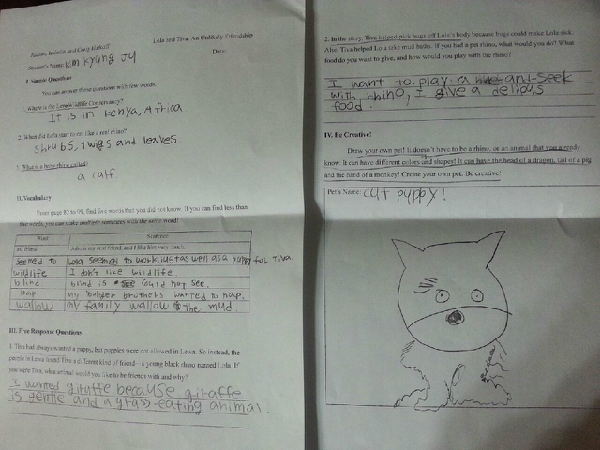 Lola and Tiva: An Unlikely Friendship
Student's Name: Kim Kyung Jy
Date:
I. Simple Questions
You can answer these questions with few words.
1. Where is the Lewa Wildlife Conservancy?
It is in Kenya, Africa
2. What did Lola start to eat like a real rhino?
shrubs, twigs and leaves
3. What is a baby rhino called?
a calf
II. Vocabulary
find five words that you did not know. If you can find less than
five words, you can make multiple sentences with the same word!
Word Sentence
ex. friend
seemed to Lola seemed to work just as well as a puppy for Tiva.
wildlife I don't like wildlife.
blind blind is could not see.
nap my brothers wanted to nap.
wallow my family wallow the mud.
III. Free Response Questions
1. Tiva had always wanted a puppy, but puppies were not allowed in Lewa. So instead, the
people in Lewa found Tiva a different kind of friend—a young black rhino named Lola. If
you were Tiva, what animal would you like to be friends with and why?
I wanted giraffe because giraffe
is gentle and a grass-eating animal.
2. In the story, Tiva helped pick bugs off Lola's body because bugs could make Lola sick.
Also Tiva helped Lola take mud baths. If you had a pet rhino, what would you do? What
food do you want to give, and how would you play with the rhino?
I want to play a hide-and-seek
with rhino, I give a delious
food.
IV. Be Creative!
Draw your own pet! It doesn't have to be a rhino, or an animal that you already
know. It can have different colors and shapes! It can have the head of a dragon, tail of a pig
and the hand of a monkey! Create your own pet. Be creative!
Pet's Name: cut puppy!